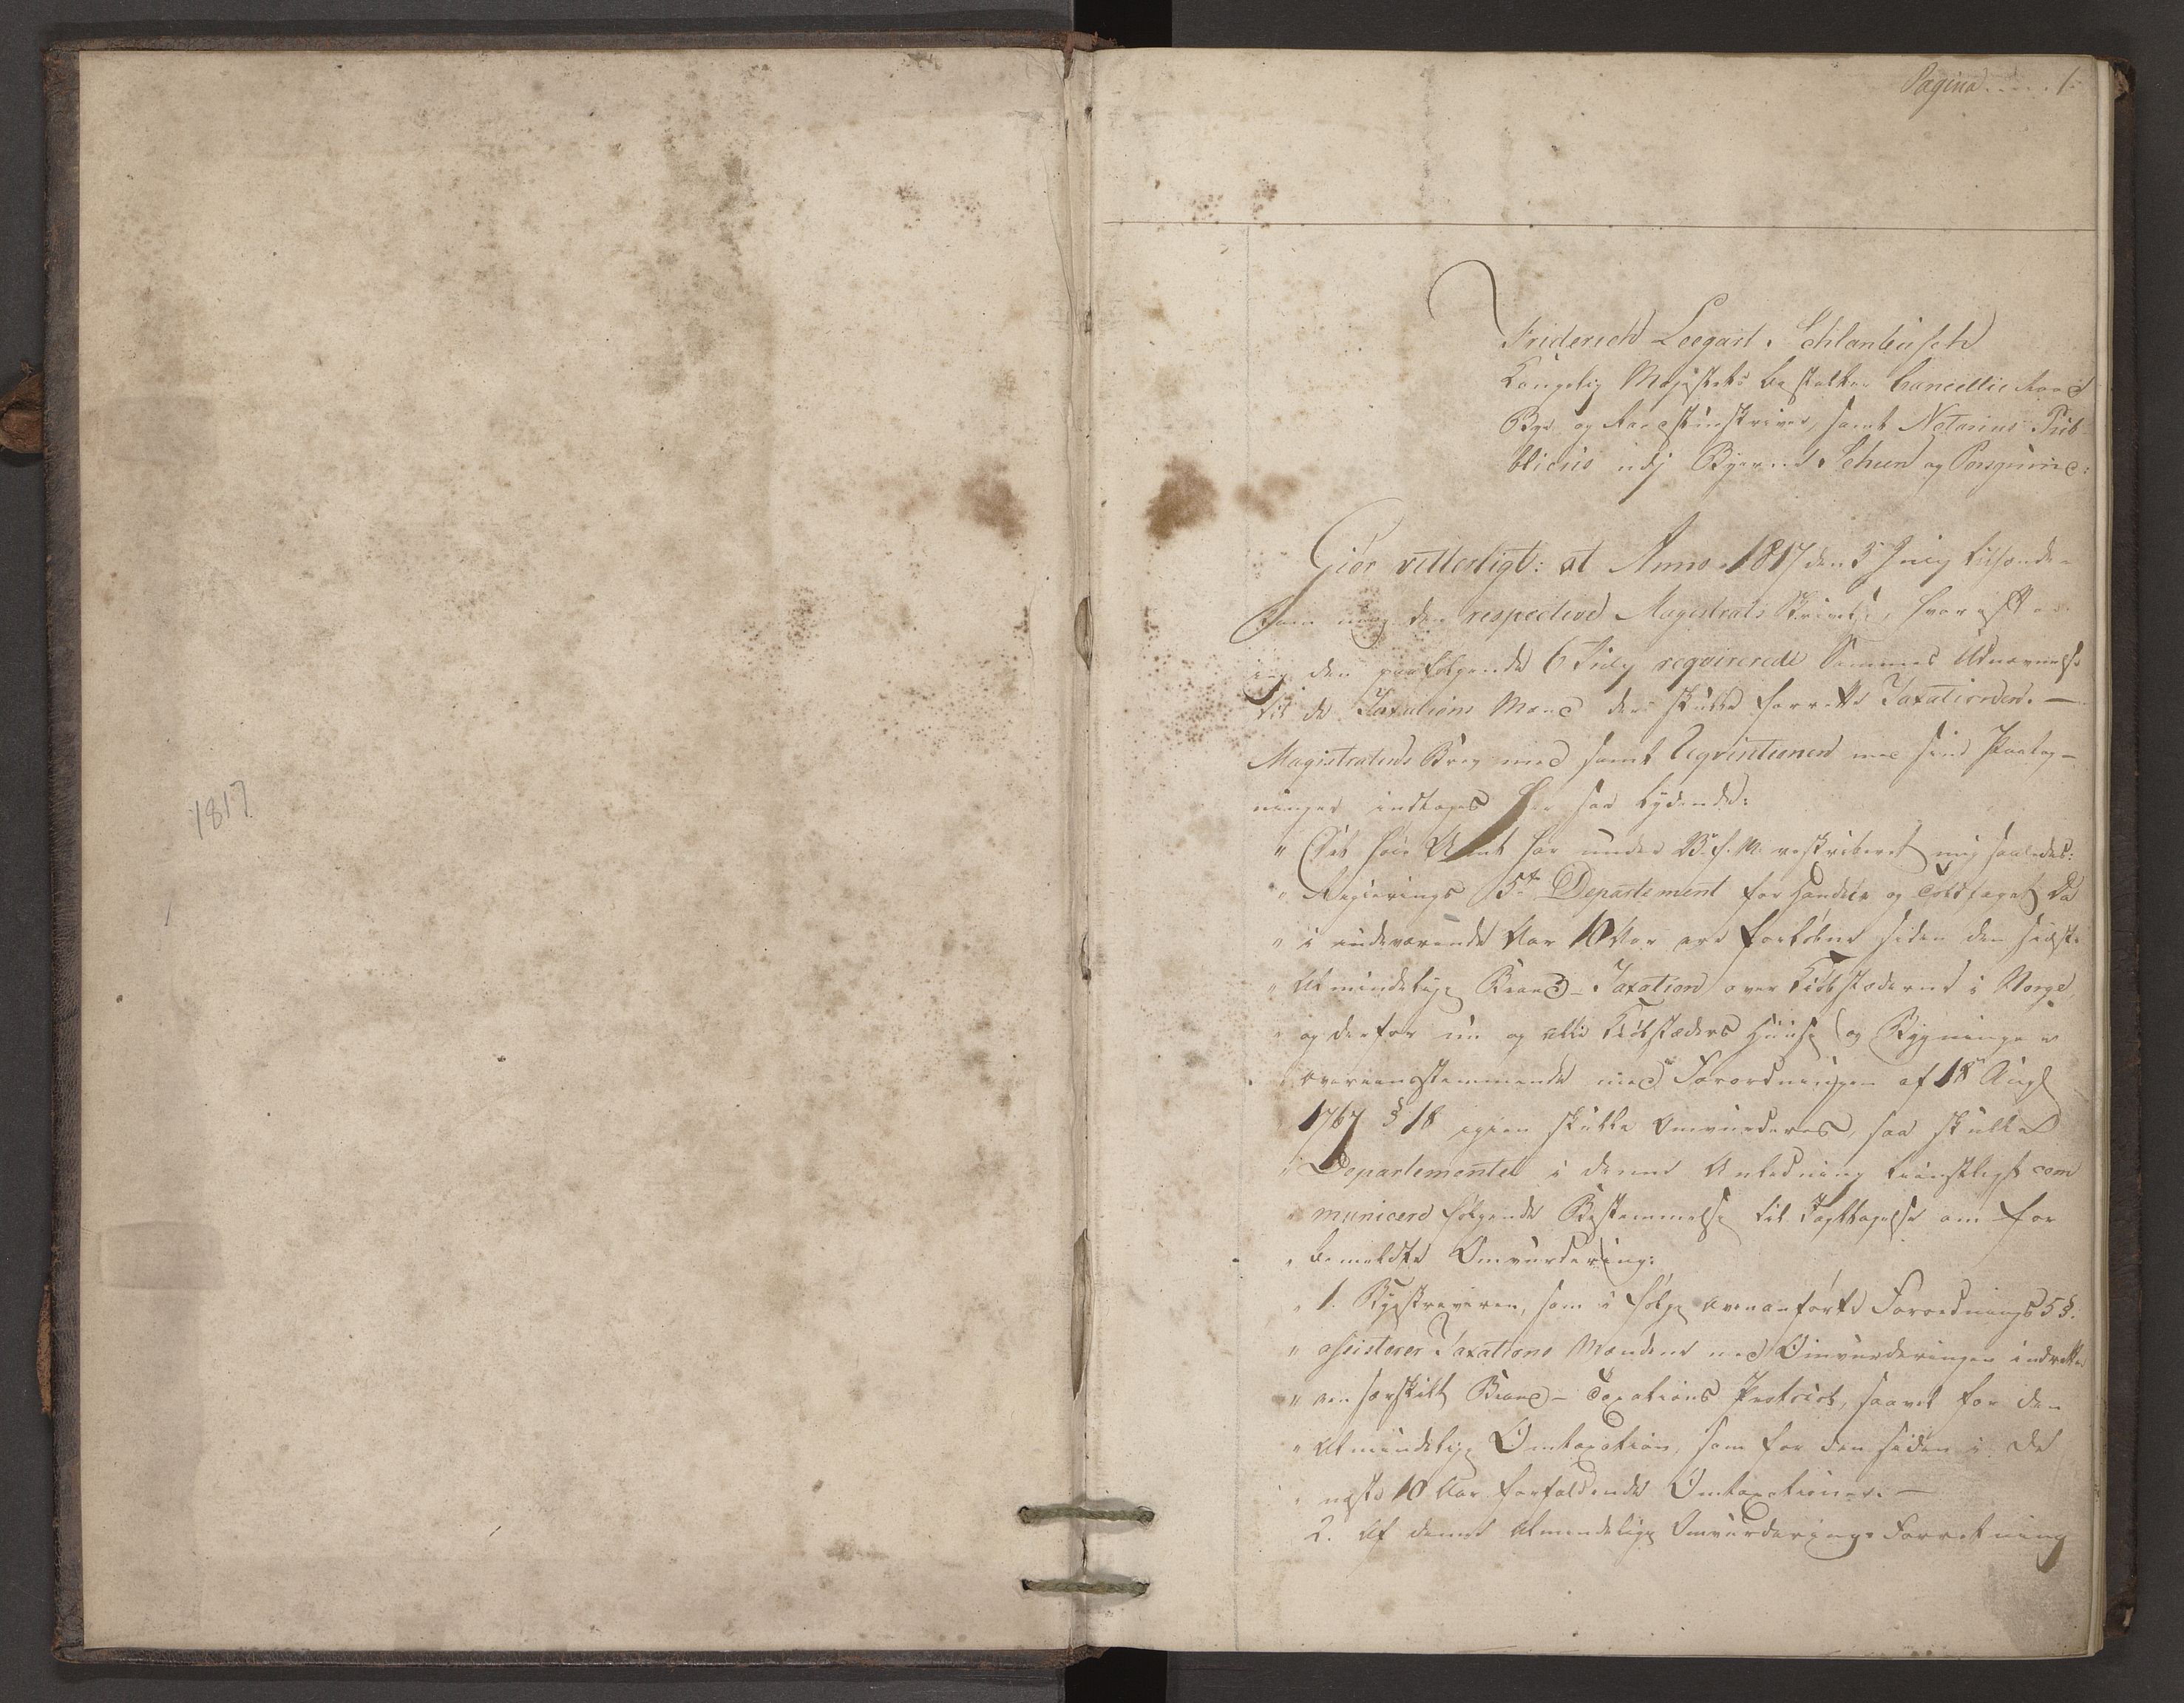 1817
Pagina. . . . . 1.
Friderich Leegart Schlanbusch
Kongelig Majestets bestalter Cancellie Raad
Bye og Raadstueskriver, samt Notarius Pub-
blicus udj Byerne Scheen og Porsgrund:
Giør vitterligt: at Anno 1817 den 5 July tilsende-
den respective Magistrats Skrivelse, hvorefter
jeg den paafølgende 6 July reqvirerede Sammes Udnævnelse
til de Taxations Mænd der skulle forrette Taxationen. —
Magistratens Brev med samt Reqvisitionen med sine Paateg-
ninger indtages her saa lydende:
" Det høie Amt har under B. f. M. reskriberet mig saaledes:
" Regierings 5te Departement for Handels og Toldfaget Da
" i indeværende Aar 10 Aar ere forløbne siden den sidste
" Almindelige Brand-Taxation over Kiøbstæderne i Norge,
" og derfor nu og alle Kiøbstæders Huuse og Bygninger
" overeensstemmende med Forordningen af 18 Aug
1767 § 18 igien skulle Omvurderes, saa skulle
" Departementet i denne Anledning tienstligst com
" municere følgende Bestemmelse til Iagttagelse om for
" bemeldte Omvurdering:
" 1. Byeskriveren, som i følge ovenanførte Forordnings 5 §.
" assisterer Taxations Mændene ved Omvurderingen indretter
" een særskilt Brand-Taxations Protocol, saavel for den
" Almindelige Omtaxation, som for den siden i de
" næste 10 Aar forfaldende Omtaxationer. —
2. Af denne Almindelige Omvurderings Forretning